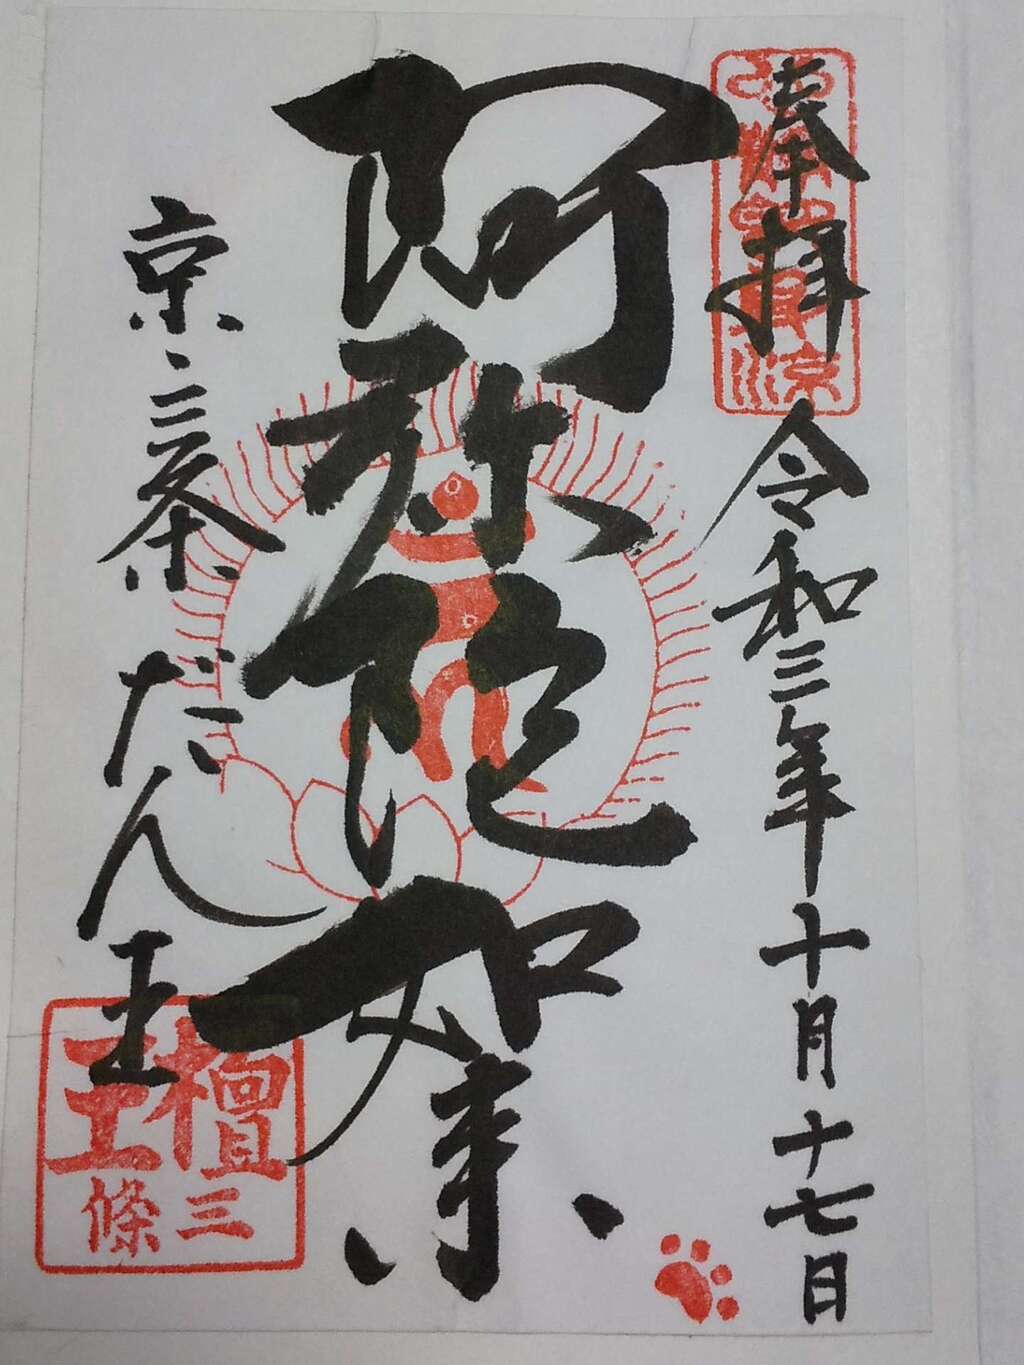 奉拝
令和三年十月十七日
阿弥陀如来
京・三条 だん王
檀王
三條